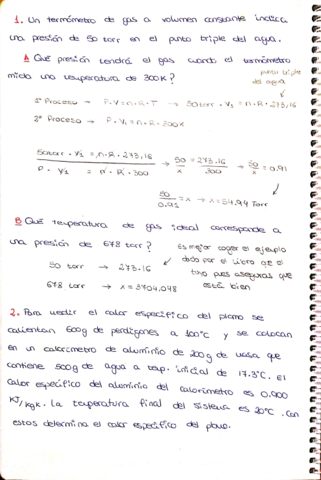 1. Un termómetro de gas a volumen constante indica
una presión de 50 torr en el punto triple del agua.
A Qué presión tendrá el gas cuando el termómetro
mida una temperatura de 300K?
punto triple
del agua
1º Proceso → P·V=n·R·T → 50torr·V₁=n·R·273,16
2º Proceso → P·V₁=n·R·300K
50torr·V₁ = n·R·273,16
P·V₁ = n·R·300
50/x = 273.16/300 → 50/x = 0.91
50/0.91 = x → x=54.94 Torr
B Qué temperatura de gas ideal corresponde a
una presión de 678 torr?
Es mejor coger el ejemplo
dado por el libro que el
tuyo pues aseguras que
está bien
50 torr → 273.16
678 torr → x=3704.048
2. Para medir el calor específico del plomo se
calientan 600g de perdigones a 100°C y se colocan
en un calorímetro de aluminio de 200g de masa que
contiene 500g de agua a temp. inicial de 17.3°C. El
calor específico del aluminio del calorímetro es 0.900
KJ/kgK. La temperatura final del sistema es 20°C. Con
estos determina el calor específico del plomo.